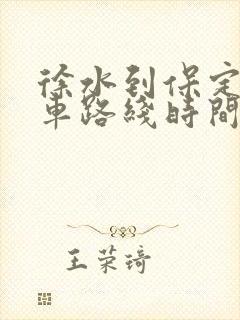 徐水到保定
車路綫時間
王荣琦